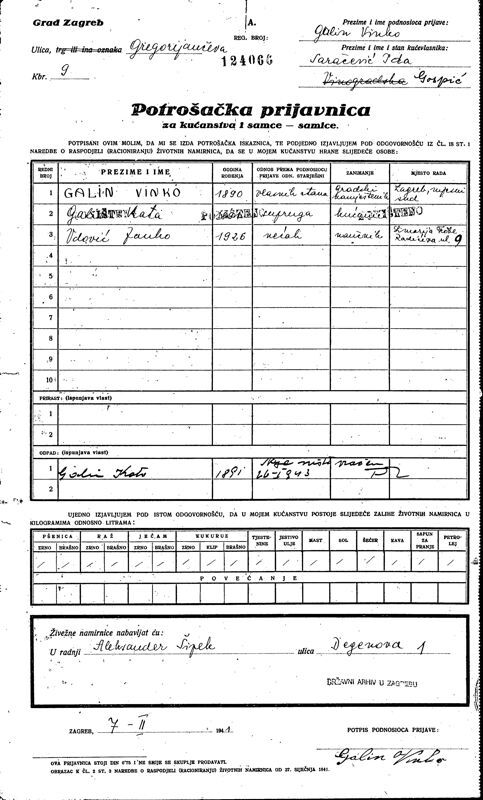 Grad Zagreb
A.
REG. BROJ:
124066
Prezime i ime podnosioca prijave:
Galin Vinko
Ulica, trg ili ina oznaka Gregorijančeva
Prezime i ime i stan kućevlasnika:
Saračević Ida
Kbr. 9
Vinogradska Gospić
Potrošačka prijavnica
za kućanstva i samce — samice.
POTPISANI OVIM MOLIM, DA MI SE IZDA POTROŠAČKA ISKAZNICA, TE PODJEDNO IZJAVLJUJEM POD ODGOVORNOŠĆU IZ ČL. 18 ST. 1
NAREDBE O RASPODJELI (RACIONIRANJU) ŽIVOTNIH NAMIRNICA, DA SE U MOJEM KUĆANSTVU HRANE SLIJEDEĆE OSOBE:
REDNI BROJ PREZIME I IME GODINA ROĐENJA ODNOS PREMA PODNOSIOCU PRIJAVE ODN. STARJEŠINI ZANIMANJE MJESTO RADA
1 GALIN VINKO 1890 vlasnik stana gradski namještenik Zagreb,
2 Kata supruga
3 Vdović Janko 1926 nećak naučnik Radićeva ul. 9
4
5
6
7
8
9
10
PRIRAST: (ispunjava vlast)
1
2
ODPAD: (ispunjava vlast)
1 Galin Kata 1891 26-I-1943
2
UJEDNO IZJAVLJUJEM POD ISTOM ODGOVORNOŠĆU, DA U MOJEM KUĆANSTVU POSTOJE SLIJEDEĆE ZALIHE ŽIVOTNIH NAMIRNICA U
KILOGRAMIMA ODNOSNO LITRAMA:
PŠENICA RAŽ JEČAM KUKURUZ TJESTENINE JESTIVO ULJE MAST SOL ŠEĆER KAVA SAPUN ZA PRANJE PETROLEJ
ZRNO BRAŠNO ZRNO BRAŠNO ZRNO BRAŠNO ZRNO KLIP BRAŠNO
/ / / / / / / / / / / / / / / / /
POVEĆANJE
Živežne namirnice nabavljat ću:
U radnji Aleksander Šipek ulica Degenova 1
DRŽAVNI ARHIV U ZAGREBU
ZAGREB, 7-II 1941
POTPIS PODNOSIOCA PRIJAVE:
Galin Vinko
OVA PRIJAVNICA STOJI DIN 0'75 I NE SMIJE SE SKUPLJE PRODAVATI.
OBRAZAC K ČL. 2 ST. 2 NAREDBE O RASPODJELI (RACIONIRANJU) ŽIVOTNIH NAMIRNICA OD 27. SIJEČNJA 1941.